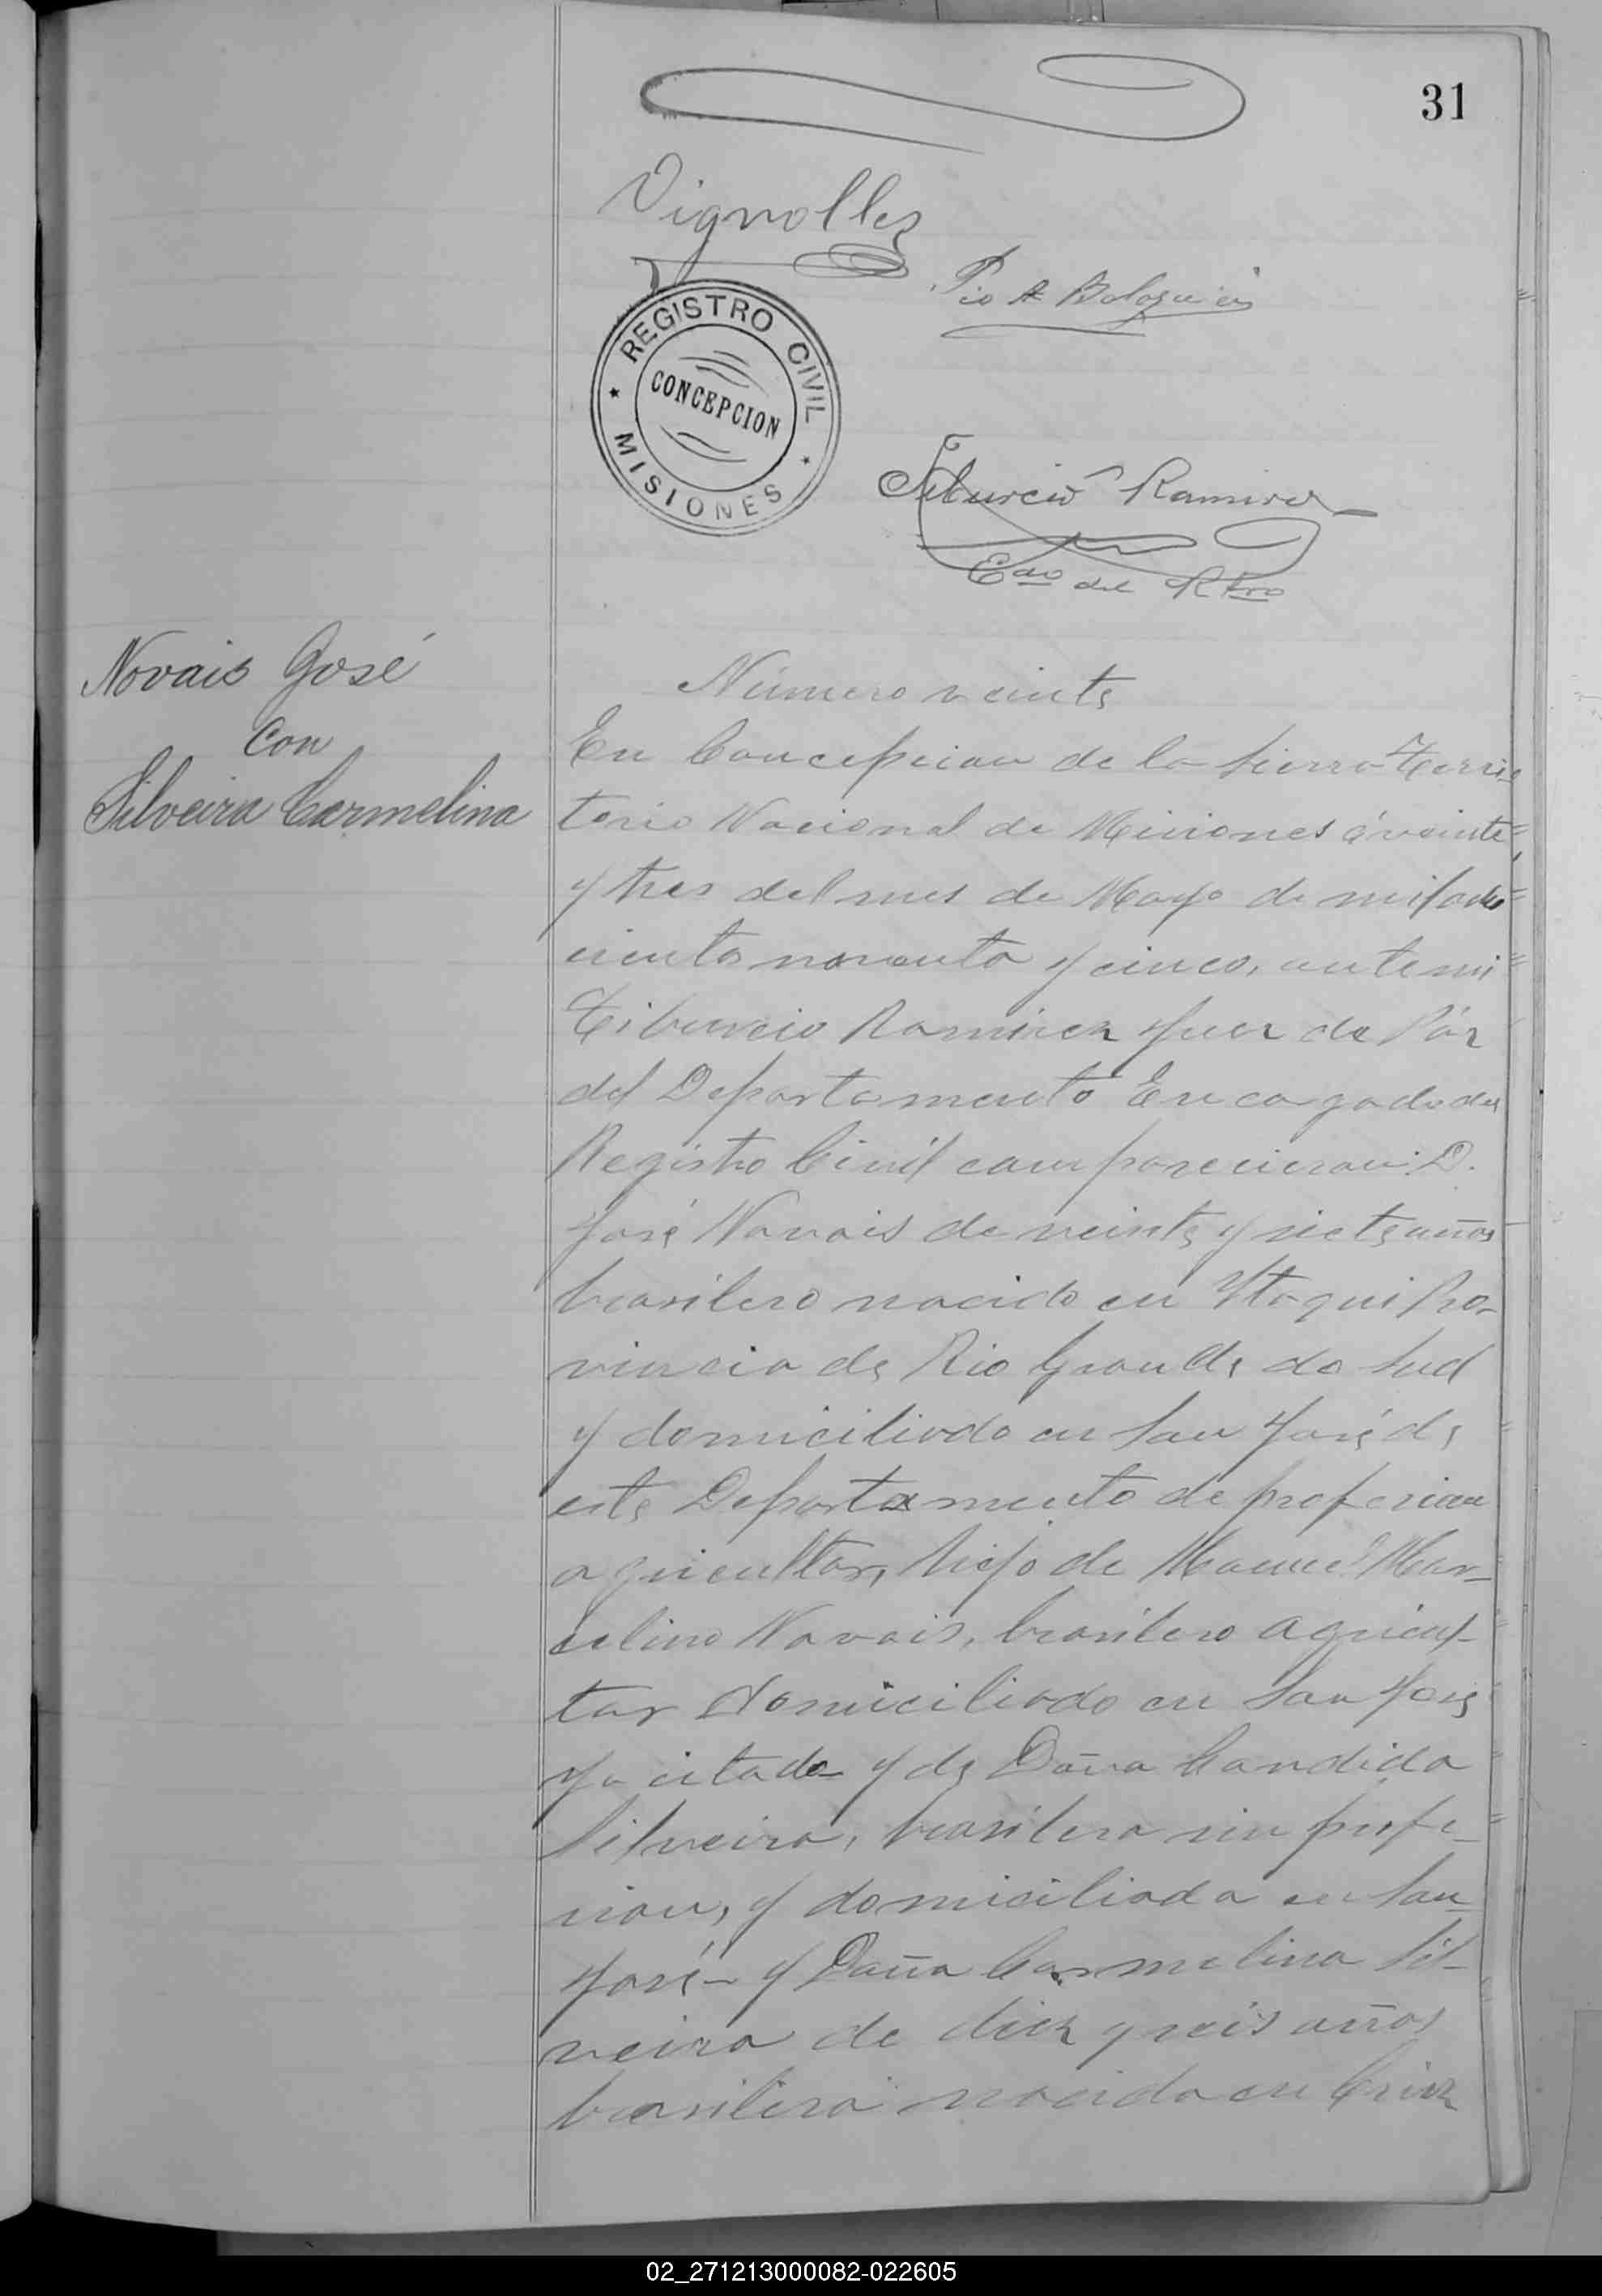 31
Vignolles
Pio A
REGISTRO CIVIL
CONCEPCION
MISIONES
Tiburcio Ramirez
Edo del Rtro
Novais José
con
Silveira Carmelina
Número veinte
En Concepcion de la Sierra Terri-
torio Nacional de Misiones á veinte
y tres del mes de Mayo de mil ocho
cientos noventa y cinco, ante mi
Tiburcio Ramirez Juez de Páz
del Departamento Encargado del
Registro Civil comparecieron: D.
José Novais de veinte y siete años
brasilero nacido en Itaqui Pro-
vincia de Rio Grande do Sud
y domiciliado en San José de
este Departamento de profesion
agricultor, hijo de Manuel Mar-
celino Novais, brasilero agricul-
tor domiciliado en San José
ya citado y de Doña Candida
Silveira, brasilera sin profe-
sion, y domiciliada en San
José y Doña Carmelina Sil-
veira de diez y seis años
brasilera nacida en Cruz
02_271213000082-022605